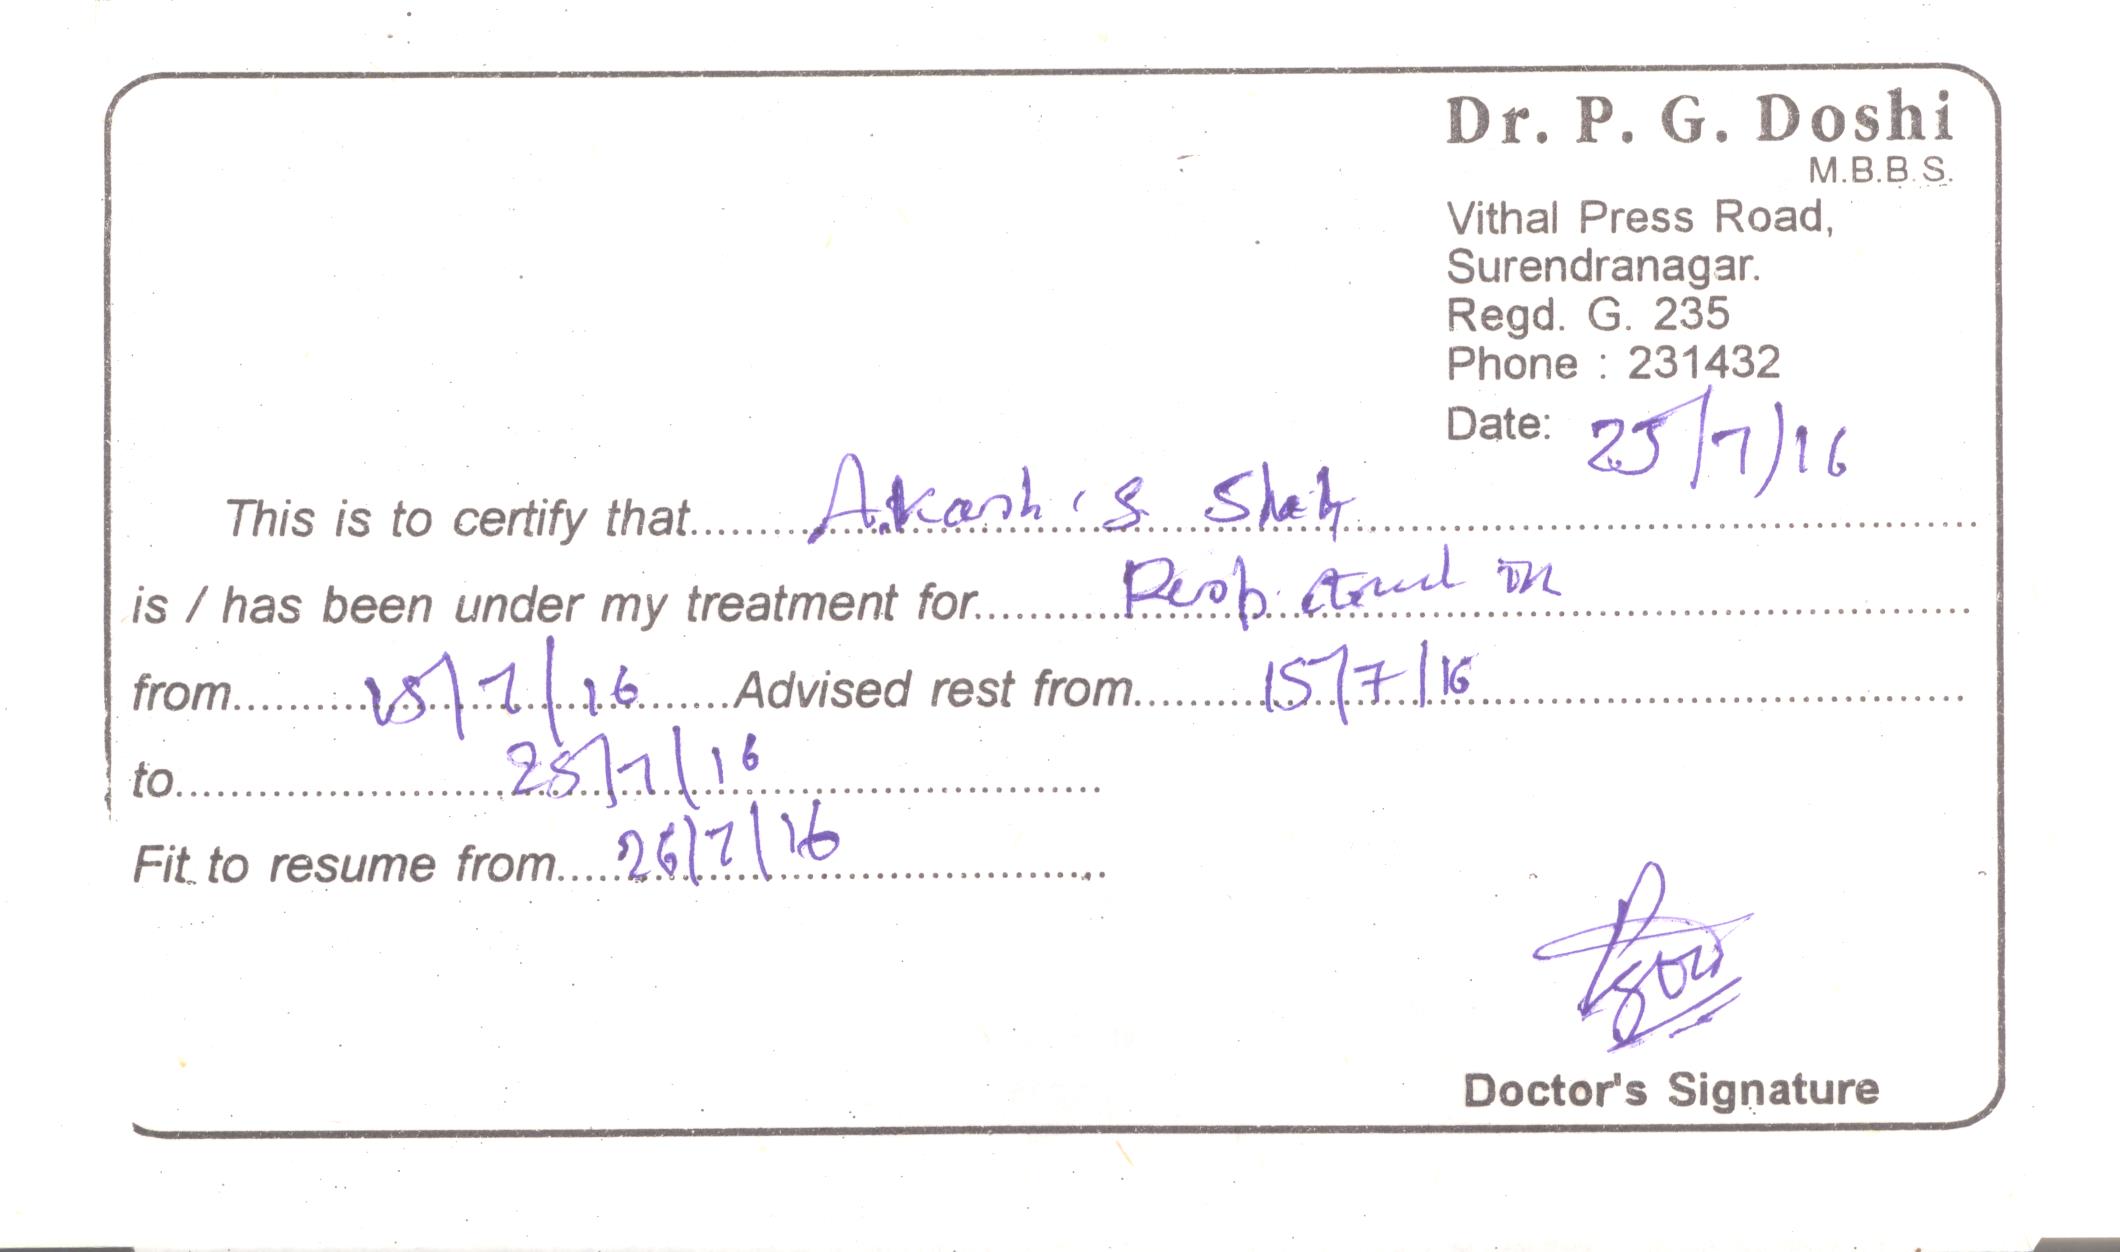 Dr. P. G. Doshi
M.B.B.S.
Vithal Press Road,
Surendranagar.
Regd. G. 235
Phone : 231432
Date: 25/7/16
This is to certify that Akash S Shah
is / has been under my treatment for
from 15/7/16 Advised rest from 15/7/16
to 25/7/16
Fit to resume from 26/7/16
Doctor's Signature